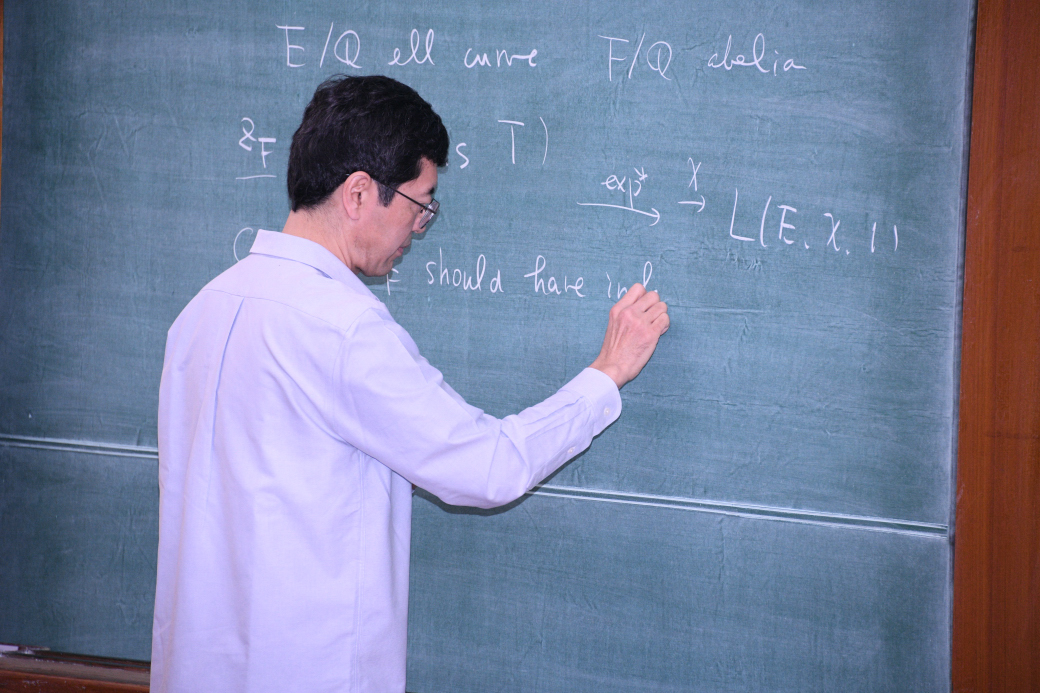 E/Q ell curve F/Q abelia
F s T)
exp* χ
→ → L(E, χ, 1)
F should have inf